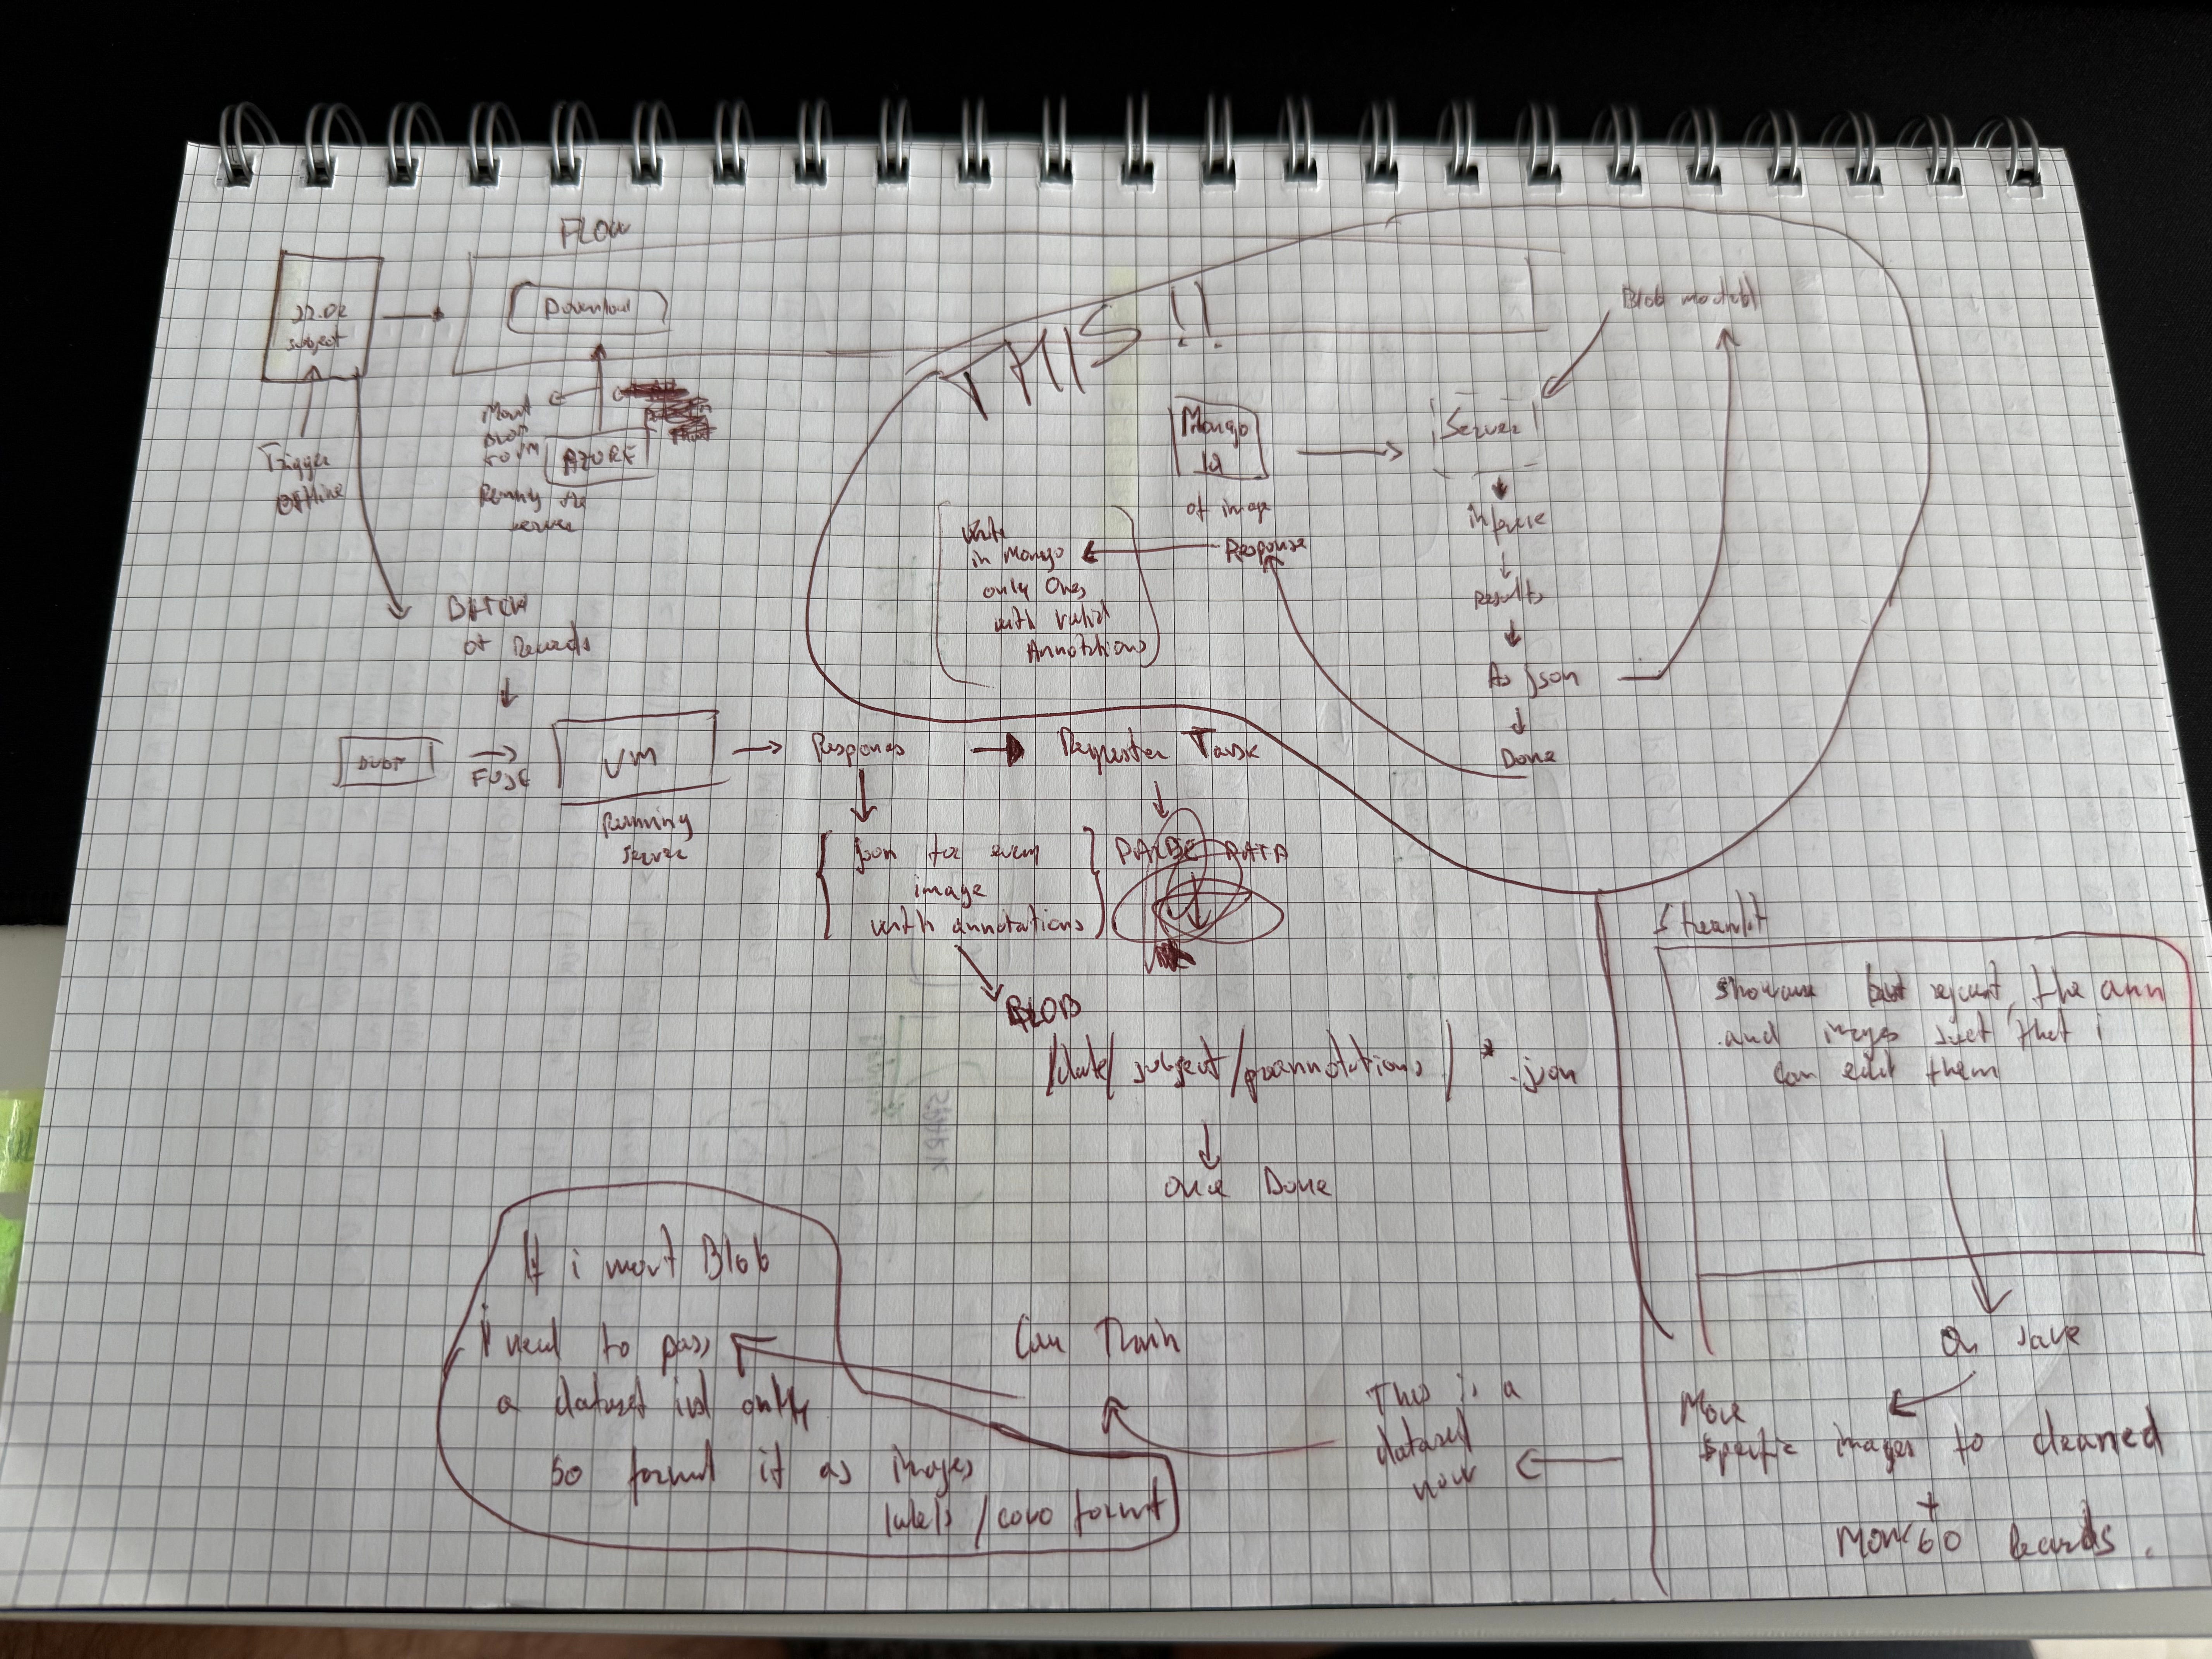 FLOW
subject
Download
Trigger
offline
Mount
Blob
to VM
AZURE
Running the
server
THIS !!
Mongo
Id
of image
Server
inference
Results
As json
Done
Response
Write
in Mongo
only Ones
with valid
Annotations
BATCH
of Records
FUSE
VM
Running
server
Response
Requester Task
json for every
image
with annotations
PARSE DATA
BLOB
/date/ subject/preannotations / *.json
once Done
Streamlit
showcase subject, the ann
and images such that i
can edit them
On save
Move
specific images to cleaned
+
MONGO Records.
This is a
dataset
now
Can Train
If i mount Blob
i need to pass
a dataset only
so format it as images
labels / coco format